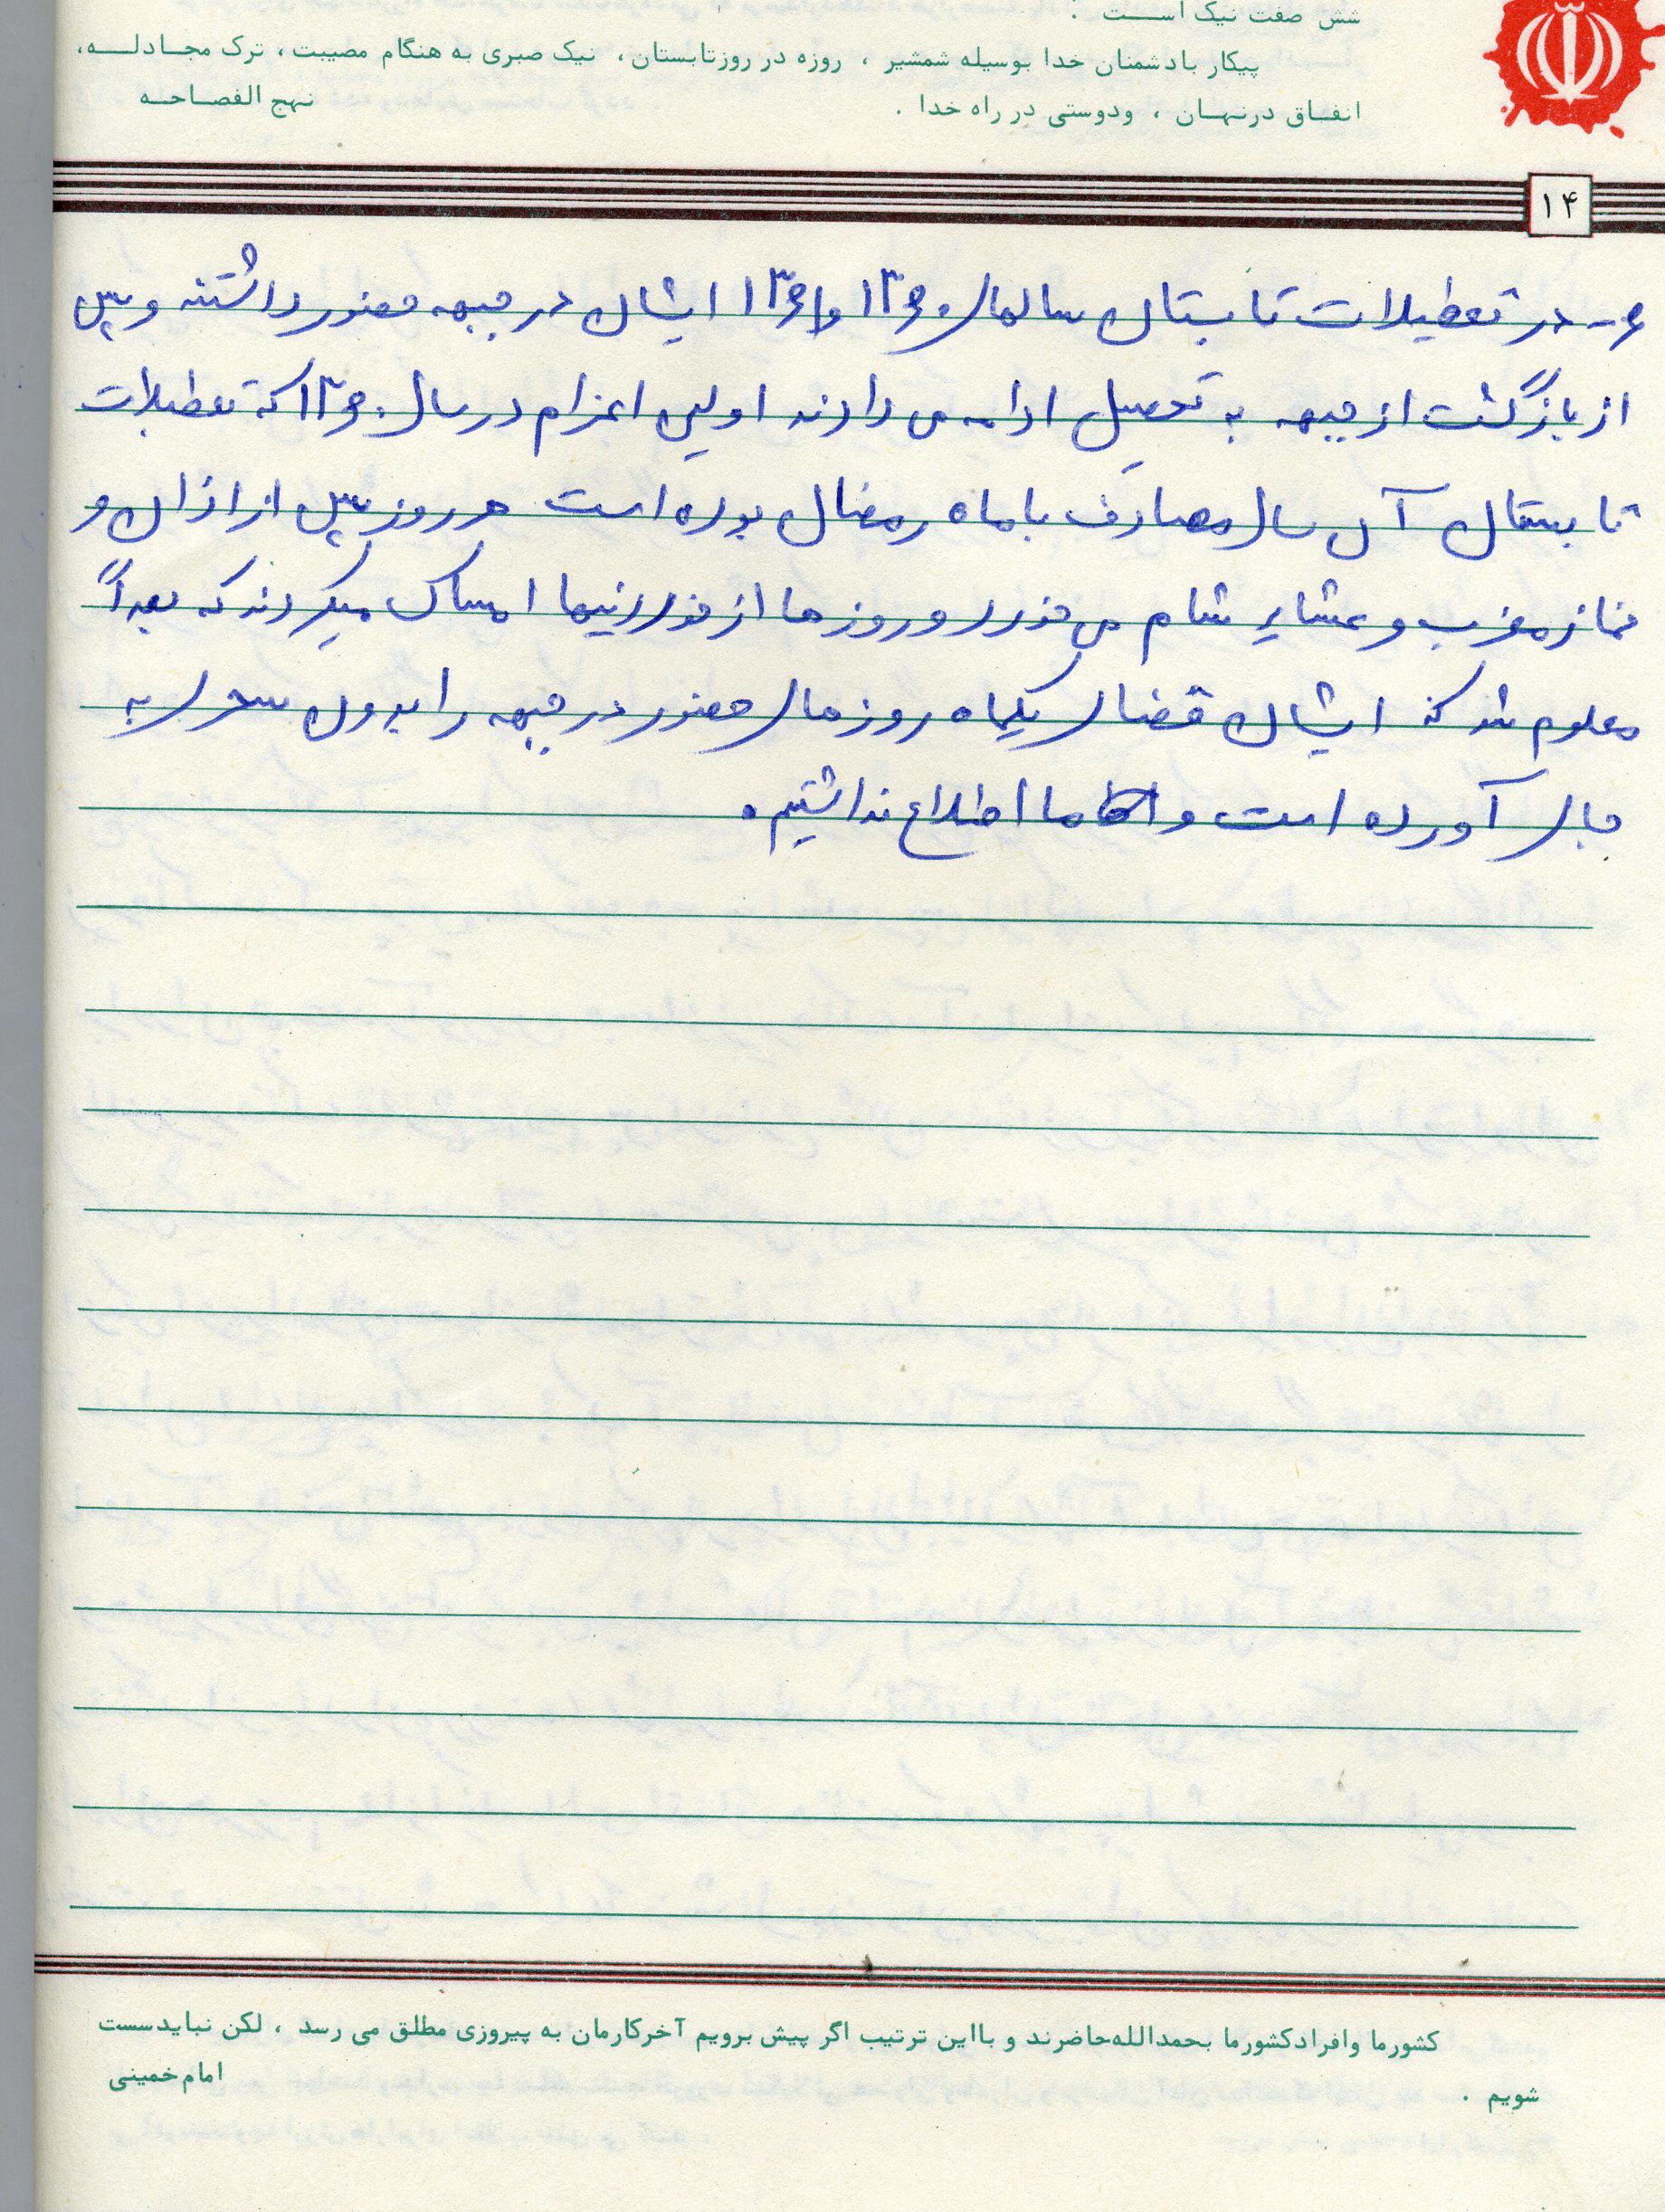 شش صفت نیک است :
پیکار بادشمنان خدا بوسیله شمشیر ، روزه در روزتابستان ، نیک صبری به هنگام مصیبت ، ترک مجادله،
انفاق درنهان ، ودوستی در راه خدا .
نهج الفصاحه
۱۴
۶- در تعطیلات تابستان سالهای ۱۳۶۰ و ۱۳۶۱ ایشان در جبهه حضور داشتند و پس
از بازگشت از جبهه به تحصیل ادامه می دادند اولین اعزام در سال ۱۳۶۰ که تعطیلات
تابستان آن سال مصادف با ماه رمضان بوده است هر روز پس از اذان و
نماز مغرب و عشاء شام می خورد و روزها از خوردنیها امساک میکردند که بعداً
معلوم شد که ایشان قضای یکماه روزهای حضور در جبهه را بدون سحری به
جای آورده است و ما اطلاع نداشتیم.
کشورما وافرادکشورما بحمدالله‌حاضرند و بااین ترتیب اگر پیش برویم آخرکارمان به پیروزی مطلق می رسد ، لکن نبایدسست
شویم .
امام‌خمینی